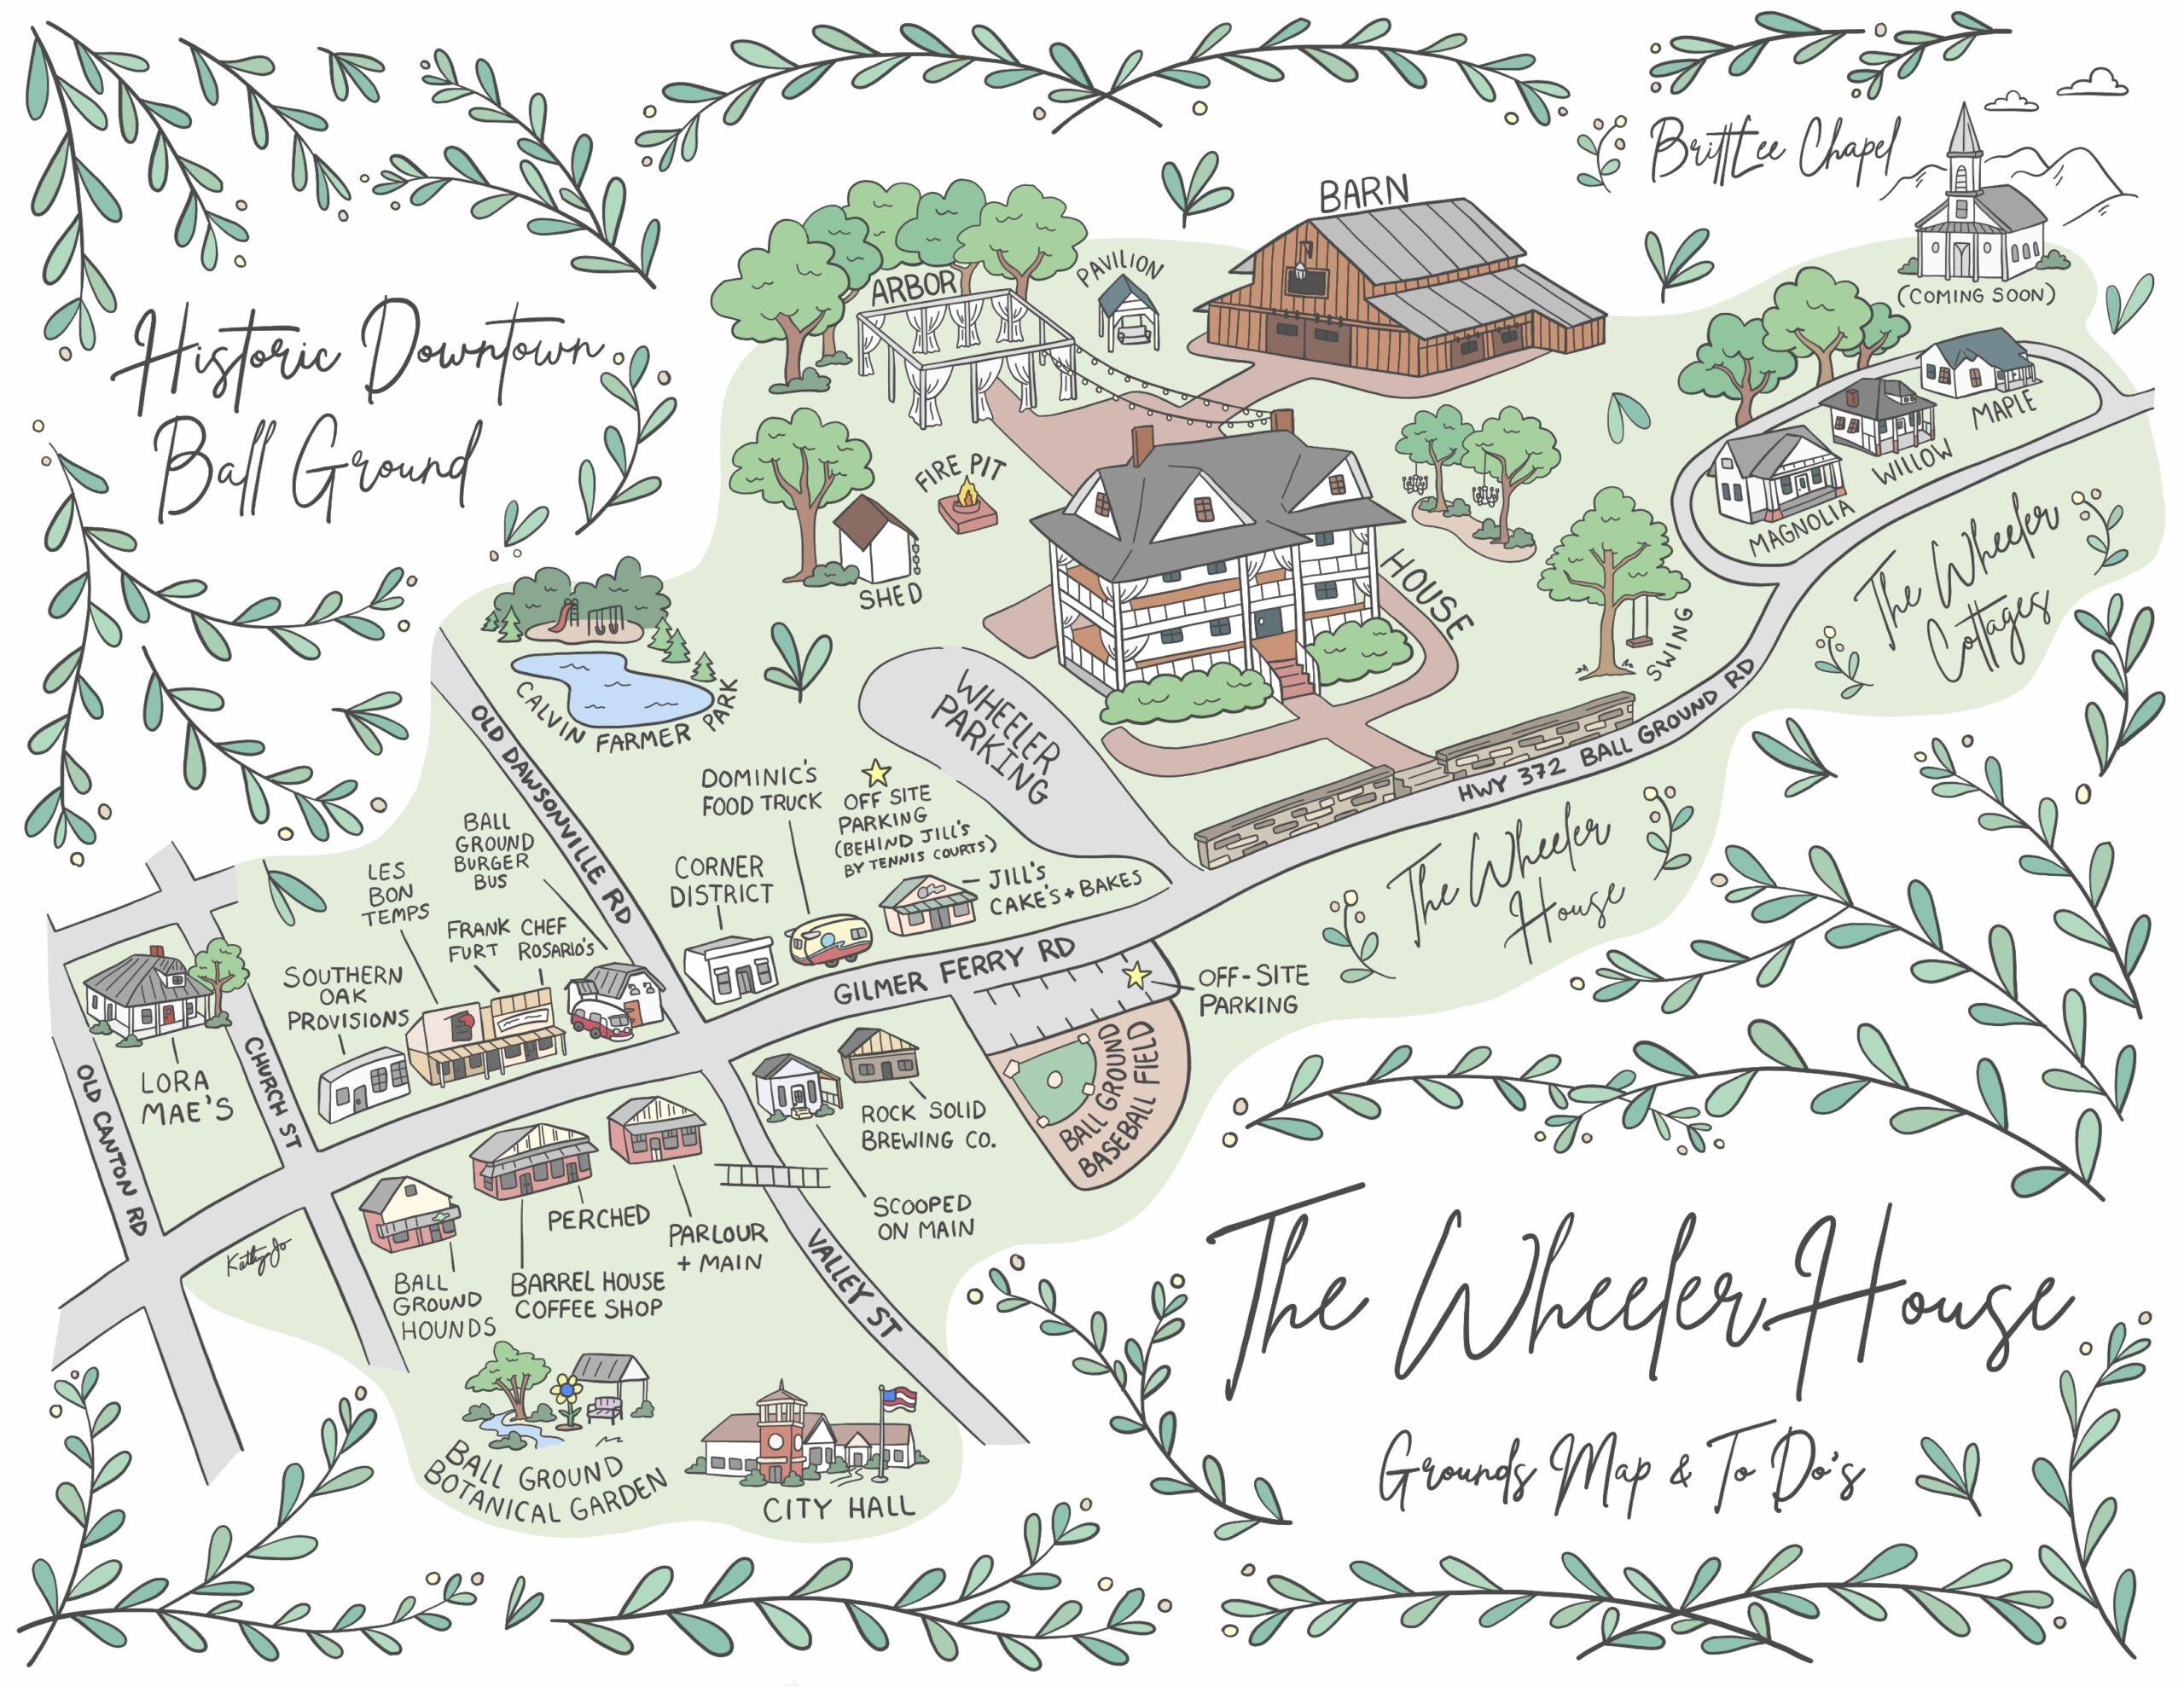 BrittLee Chapel
(COMING SOON)
BARN
PAVILION
ARBOR
Historic Downtown
Ball Ground
MAPLE
WILLOW
MAGNOLIA
The Wheeler
Cottages
FIRE PIT
SHED
HOUSE
SWING
CALVIN FARMER PARK
WHEELER
PARKING
HWY 372 BALL GROUND RD
The Wheeler
House
OLD DAWSONVILLE RD
DOMINIC'S
FOOD TRUCK
OFF SITE
PARKING
(BEHIND JILL'S
BY TENNIS COURTS)
CORNER
DISTRICT
JILL'S
CAKE'S + BAKES
BALL
GROUND
BURGER
BUS
LES
BON
TEMPS
FRANK
FURT
CHEF
ROSARIO'S
SOUTHERN
OAK
PROVISIONS
GILMER FERRY RD
OFF-SITE
PARKING
BALL GROUND
BASEBALL FIELD
LORA
MAE'S
CHURCH ST
OLD CANTON RD
ROCK SOLID
BREWING CO.
SCOOPED
ON MAIN
PERCHED
PARLOUR
+ MAIN
VALLEY ST
KathyJo
BALL
GROUND
HOUNDS
BARREL HOUSE
COFFEE SHOP
BALL GROUND
BOTANICAL GARDEN
CITY HALL
The Wheeler House
Grounds Map & To Do's